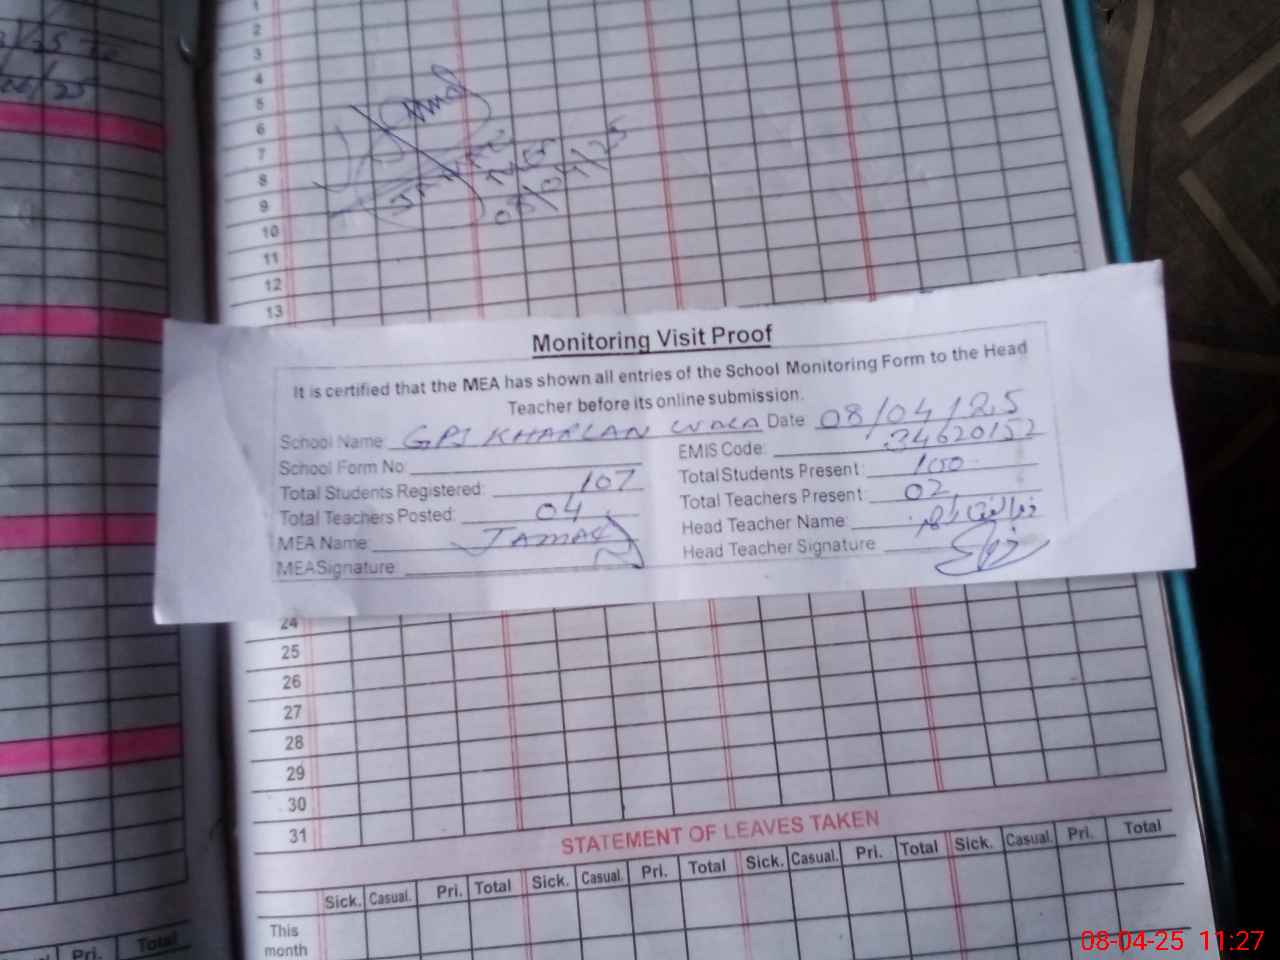 1
2
3
4
5
6
7
8
9
10
11
12
13
08/04/25
Monitoring Visit Proof
It is certified that the MEA has shown all entries of the School Monitoring Form to the Head
Teacher before its online submission.
School Name: GPS KHARLAN WALA Date 08/04/25
School Form No: EMIS Code: 34620152
Total Students Registered: 107 Total Students Present: 100
Total Teachers Posted: 04 Total Teachers Present: 02
MEA Name: JAMAL Head Teacher Name:
MEA Signature: Head Teacher Signature
24
25
26
27
28
29
30
31
STATEMENT OF LEAVES TAKEN
Sick. Casual. Pri. Total Sick. Casual. Pri. Total Sick. Casual. Pri. Total
This
month
Pri. Total
08-04-25 11:27